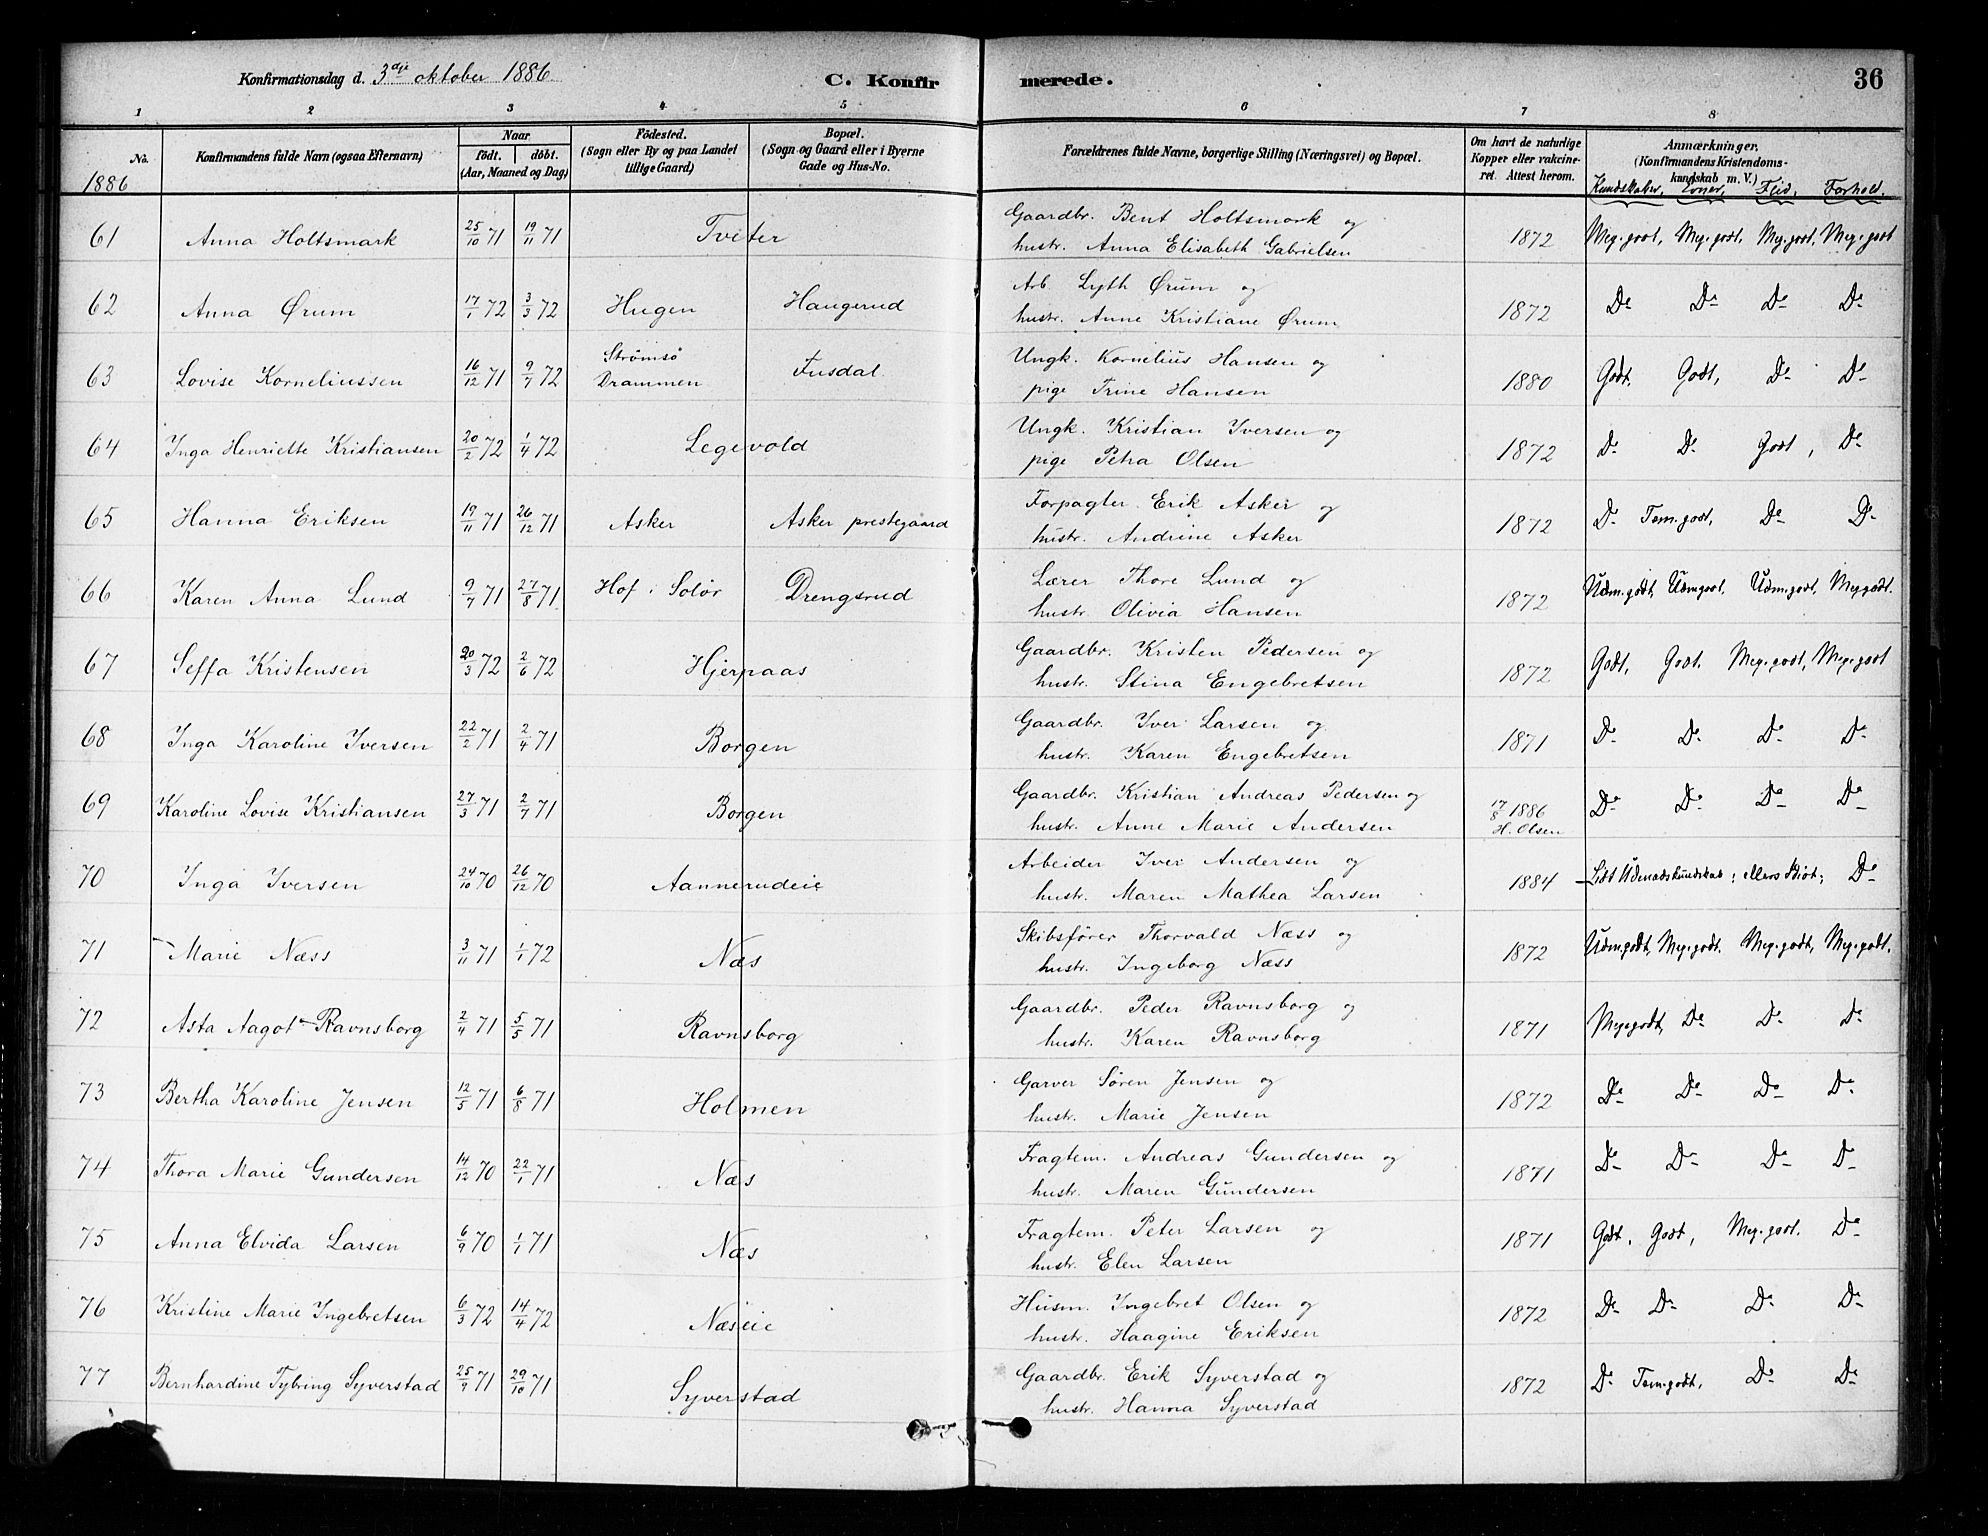 Konfirmationsdag d. 3dje oktober 1886. C. Konfirmerede. 36
1 2 3 4 5 6 7 8
No. Konfirmandens fulde Navn (ogsaa Efternavn) Naar födt. döbt. (Aar, Maaned og Dag) Födested. (Sogn eller By og paa Landet tillige Gaard) Bopæl. (Sogn og Gaard eller i Byerne Gade og Hus-No. Forældrenes fulde Navne, borgerlige Stilling (Næringsvei) og Bopæl. Om havt de naturlige Kopper eller vakcineret. Attest herom. Anmærkninger. (Konfirmandens Kristendomskundskab m. V.)
1886 Kundskaber, Evner, Flid, Forhold.
61 Anna Holtsmark 25/10 71 19/11 71 Tveter Gaardbr. Bent Holtsmark og
hustr. Anna Elisabeth Gabrielsen 1872 Meg. godt, Meg. godt, Meg. godt, Meg. godt
62 Anna Ørum 17/1 72 3/3 72 Hugen Haugerud Arb. Lyth Ørum og
hustr. Anne Kristiane Ørum 1872 Do Do Do Do
63 Lovise Korneliussen 16/12 71 9/7 72 Strømsö Drammen Fusdal. Ungk. Kornelius Hansen og
pige Trine Hansen 1880 Godt, Godt, Do Do
64 Inga Henriette Kristiansen 20/2 72 1/4 72 Legevold Ungk. Kristian Iversen og
pige Petra Olsen 1872 Do Do Godt, Do
65 Hanna Eriksen 19/11 71 26/12 71 Asker Asker prestegaard Forpagter Erik Asker og
hustr. Andrine Asker 1872 Do Tem. godt, Do Do
66 Karen Anna Lund 9/7 71 27/8 71 Hof i Solör Drengsrud Lærer Thore Lund og
hustr. Olivia Hansen 1872 Udm. godt, Udm. godt, Udm. godt, Meg. godt.
67 Seffa Kristensen 20/3 72 2/6 72 Hjerpaas Gaardbr. Kristen Pedersen og
hustr. Stina Engebretsen 1872 Godt, Godt, Meg. godt, Meg. godt
68 Inga Karoline Iversen 22/2 71 2/4 71 Borgen Gaardbr. Iver Larsen og
hustr. Karen Engebretsen 1871 Do Do Do Do
69 Karoline Lovise Kristiansen 27/3 71 2/7 71 Borgen Gaardbr. Kristian Andreas Pedersen og
hustr. Anne Marie Andersen 17/8 1886 H. Olsen Do Do Do Do
70 Inga Iversen 24/10 70 26/12 70 Aannerudeie Arbeider Iver Andersen og
hustr. Maren Mathea Larsen 1884 Lidt Udenadskundskab; ellers Idiot; Do
71 Marie Næss 3/11 71 1/1 72 Næs Skibsförer Thorvald Næss og
hustr. Ingeborg Næss 1872 Udm. godt, Meg. godt, Meg. godt, Meg. godt.
72 Asta Aagot Ravnsborg 2/4 71 5/5 71 Ravnsborg Gaardbr. Peder Ravnsborg og
hustr. Karen Ravnsborg 1871 Meg. godt, Do Do Do
73 Bertha Karoline Jensen 12/5 71 6/8 71 Holmen Garver Sören Jensen og
hustr. Marie Jensen 1872 Do Do Do Do
74 Thora Marie Gundersen 14/12 70 22/1 71 Næs Fragtem. Andreas Gundersen og
hustr. Maren Gundersen 1871 Do Do Do Do
75 Anna Elvida Larsen 6/9 70 1/1 71 Næs Fragtem. Peter Larsen og
hustr. Elen Larsen 1871 Godt, Godt, Meg. godt. Do
76 Kristine Marie Ingebretsen 6/3 72 14/4 72 Næseie Husm. Ingebret Olsen og
hustr. Haagine Eriksen 1872 Do Do Do Do
77 Bernhardine Tybring Syverstad 25/9 71 29/10 71 Syverstad Gaardbr. Erik Syverstad og
hustr. Hanna Syverstad 1872 Do Tem. godt, Do Do